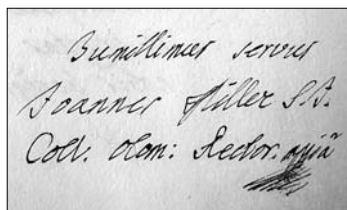 Humillimus servus
Joannes Miller S.J.
Coll. Olom: Rector. mpia